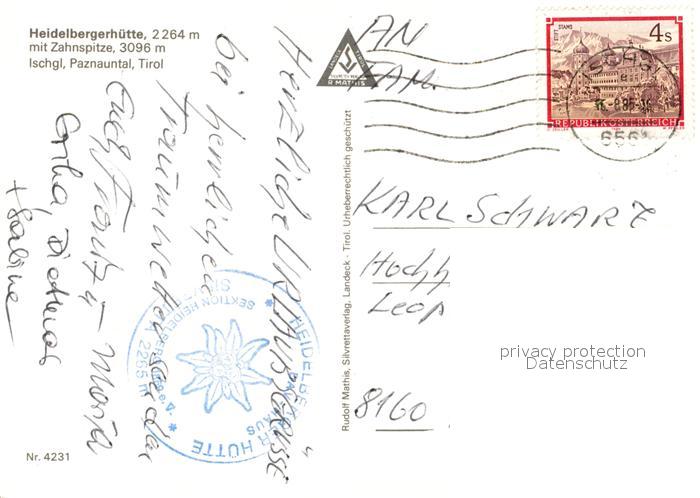 Heidelbergerhütte, 2264 m
mit Zahnspitze, 3096 m
Ischgl, Paznauntal, Tirol
Herzliche URLAUBSGRÜSSE
bei herrlichen
Traumwetter
Euch
Erika, Dietmar
+ Sabine
HEIDELBERGER HÜTTE
SEKTION HEIDELBERG
2265 m
R MATHIS
Rudolf Mathis, Silvrettaverlag, Landeck - Tirol. Urheberrechtlich geschützt
Nr. 4231
AN
FAM.
KARL SCHWARZ
8160
STIFT STAMS
4 S
REPUBLIK ÖSTERREICH
6561
privacy protection
Datenschutz